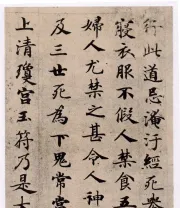 行此道忌淹汙經死
寢衣服不假人禁食五
婦人尤禁之甚令人神
及三世死為下鬼常當
上清瓊宮玉符乃是